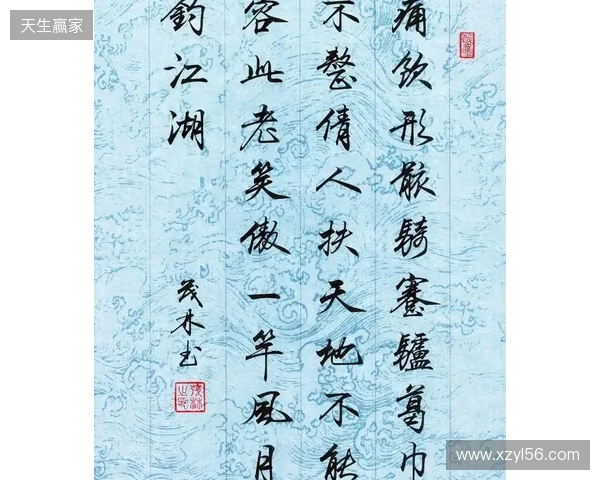 天生赢家
痛飲形骸騎蹇驢葛巾
不整倩人扶天地不能
容此老笑傲一竿風月
釣江湖
茂林书
www.xzyl56.com